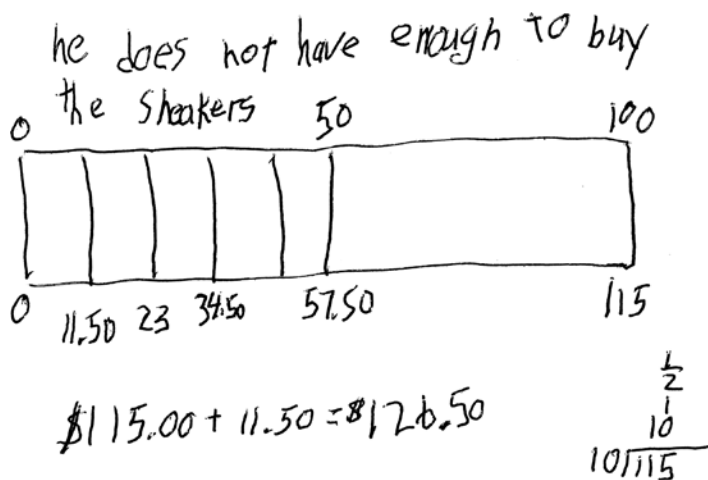 he does not have enough to buy
the Sneakers
0 50 100
0 11.50 23 34.50 57.50 115
$115.00 + 11.50 = $126.50
1/2
1
10
10 115